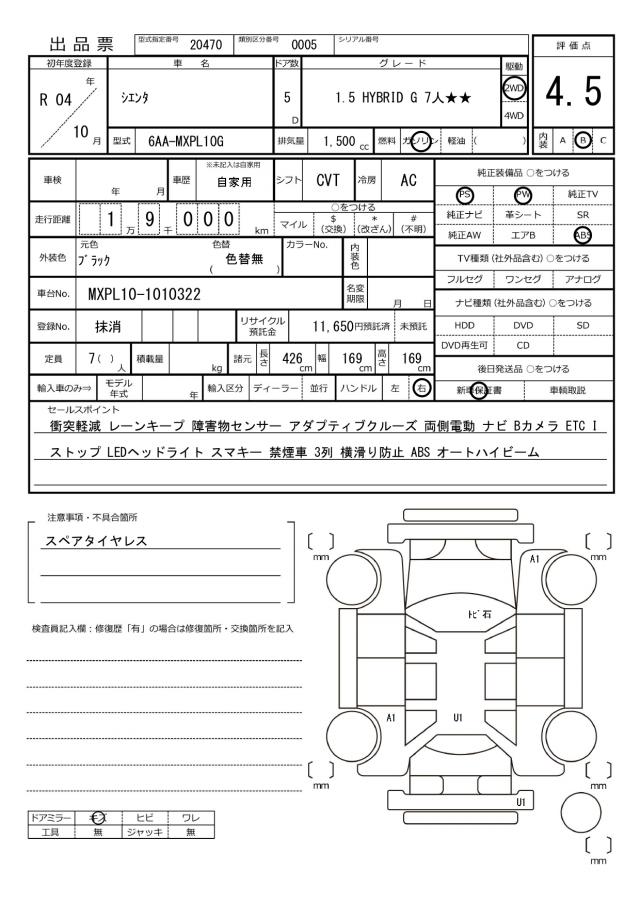 出品票 型式指定番号 20470 類別区分番号 0005 シリアル番号
評価点
4.5
初年度登録 車名 ドア数 グレード 駆動
R 04 年 10 月
シエンタ 5 D 1.5 HYBRID G 7人★★ 2WD
4WD
型式 6AA-MXPL10G 排気量 1,500 cc 燃料 ガソリン 軽油 ( ) 内装 A B C
車検 年 月 車歴 ※未記入は自家用 自家用 シフト CVT 冷房 AC
走行距離 1 万 9 千 0 0 0 km
○をつける
マイル $ (交換) * (改ざん) # (不明)
外装色 元色 ブラック 色替 ( 色替無 ) カラーNo. 内装色
車台No. MXPL10-1010322 名変期限 月 日
登録No. 抹消 リサイクル預託金 11,650円預託済 未預託
定員 7( ) 人 積載量 kg 諸元 長さ 426 cm 幅 169 cm 高さ 169 cm
輸入車のみ⇒ モデル年式 年 輸入区分 ディーラー 並行 ハンドル 左 右
純正装備品 ○をつける
PS PW 純正TV
純正ナビ 革シート SR
純正AW エアB ABS
TV種類 (社外品含む) ○をつける
フルセグ ワンセグ アナログ
ナビ種類 (社外品含む) ○をつける
HDD DVD SD
DVD再生可 CD
後日発送品 ○をつける
新車保証書 車輌取説
セールスポイント
衝突軽減 レーンキープ 障害物センサー アダプティブクルーズ 両側電動 ナビ Bカメラ ETC I
ストップ LEDヘッドライト スマキー 禁煙車 3列 横滑り防止 ABS オートハイビーム
注意事項・不具合箇所
スペアタイヤレス
検査員記入欄：修復歴「有」の場合は修復箇所・交換箇所を記入
mm
mm
A1
トビ石
A1
U1
mm
mm
U1
mm
ドアミラー キズ ヒビ ワレ
工具 無 ジャッキ 無